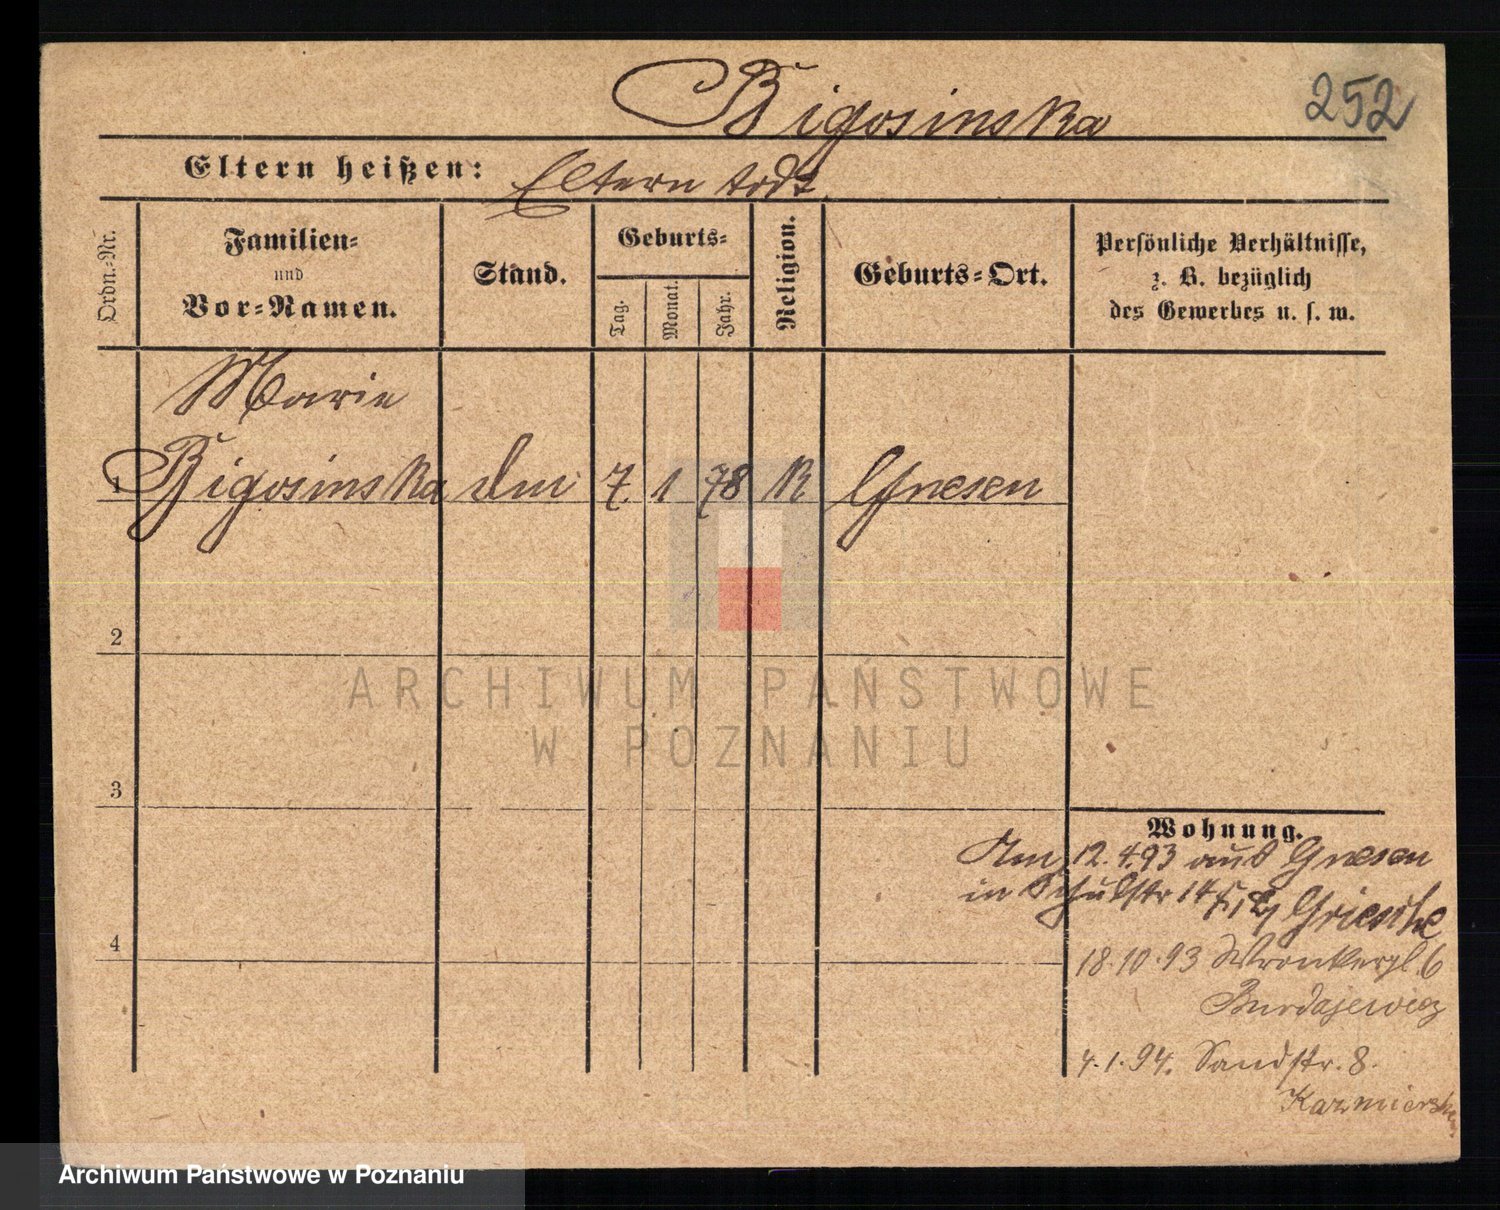 Bigosinska
252
Eltern heißen: Eltern todt
Ordn.-Nr.
Familien-
und
Vor-Namen.
Stand.
Geburts-
Tag.
Monat.
Jahr.
Religion.
Geburts-Ort.
Persönliche Verhältnisse,
z. B. bezüglich
des Gewerbes u. s. w.
Marie
1 Bigosinska 7. 1 78 K Gnesen
2
3
4
ARCHIWUM PAŃSTWOWE
W POZNANIU
Wohnung.
Am 12.4.93 aus Gnesen
in Schulstr 14
18.10.93 Wronkerpl. 6
Burdajewicz
4.1.94. Sandstr. 8.
Kazmierski
Archiwum Państwowe w Poznaniu